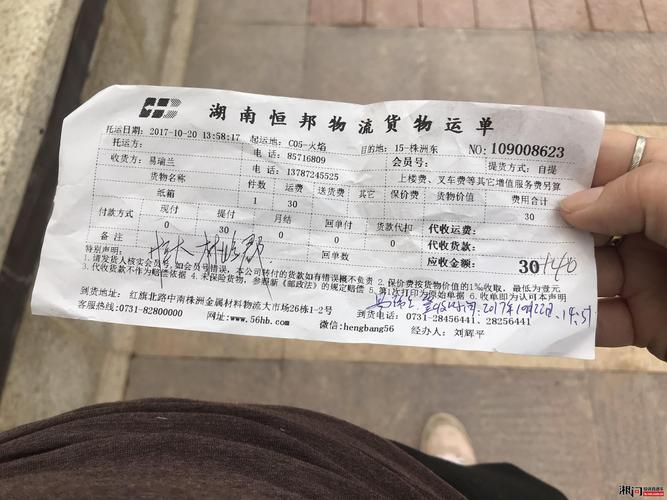 湖南恒邦物流货物运单
托运日期: 2017-10-20 13:58:17 起运地: C05-火焰 目的地: 15-株洲东 NO: 109008623
托运方: 电话: 85716809 会员号: 提货方式: 自提
收货方: 易瑞兰 电话: 13787245525 上楼费、叉车费等其它增值服务费另算
货物名称 件数 运费 送货费 其它 保价费 货物价值 费用合计
纸箱 1 30 30
付款方式 现付 提付 月结 回单付 货款代扣 代收运费:
0 30 0 0 0 代收货款:
备注 回单数 应收金额: 30
特别声明:
1.请发货人核实会员号,如会员号错误,本公司转付的货款如有错误概不负责 2.保价费按货物价值的1%收取,最低为壹元
3.代收货款不作为赔偿依据 4.未保险货物,参照新《邮政法》的规定赔偿 5.第1次打印为原始单据 6.收单即为认可本声明
到货地址: 红旗北路中南株洲金属材料物流大市场26栋1-2号 2017年10月22日.14:51
客服热线:0731-82800000 到货电话: 0731-28456441、28256441
网址:www.56hb.com 微信:hengbang56 经办人: 刘辉平
湘问 投诉直通车